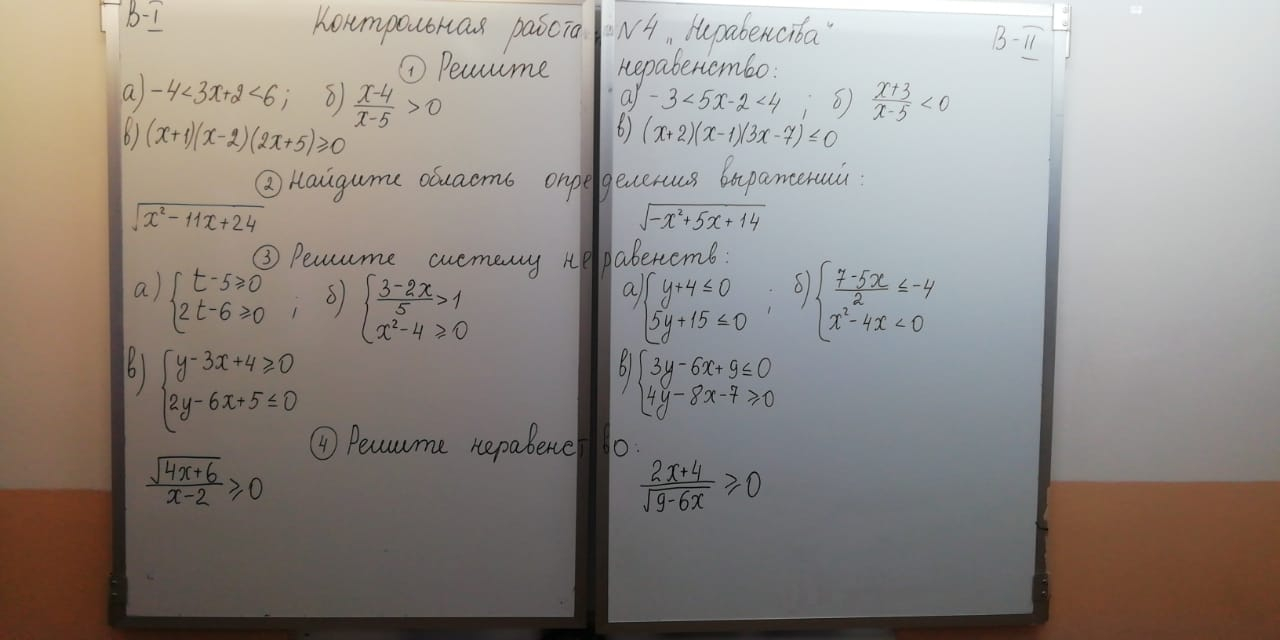 В-I Контрольная работа №4 „Неравенства" В-II
① Решите неравенство:
а) -4<3x+2<6; б) (x-4)/(x-5) >0
в) (x+1)(x-2)(2x+5)≥0
а) -3<5x-2<4; б) (x+3)/(x-5) <0
в) (x+2)(x-1)(3x-7)≤0
② Найдите область определения выражений:
√(x²-11x+24)
√(-x²+5x+14)
③ Решите систему неравенств:
а) { t-5≥0
2t-6≥0 ;
б) { (3-2x)/5 >1
x²-4≥0
в) { y-3x+4≥0
2y-6x+5≤0
а) { y+4≤0
5y+15≤0 ;
б) { (7-5x)/2 ≤-4
x²-4x<0
в) { 3y-6x+9≤0
4y-8x-7≥0
④ Решите неравенство:
√(4x+6)/(x-2) ≥0
(2x+4)/√(9-6x) ≥0